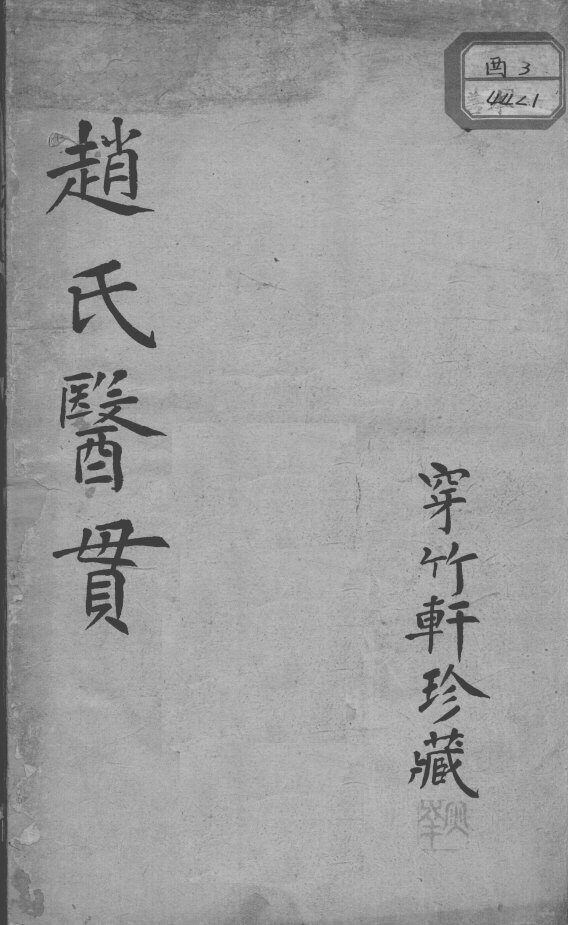 酉 3
4421
穿竹軒珍藏
趙氏醫貫